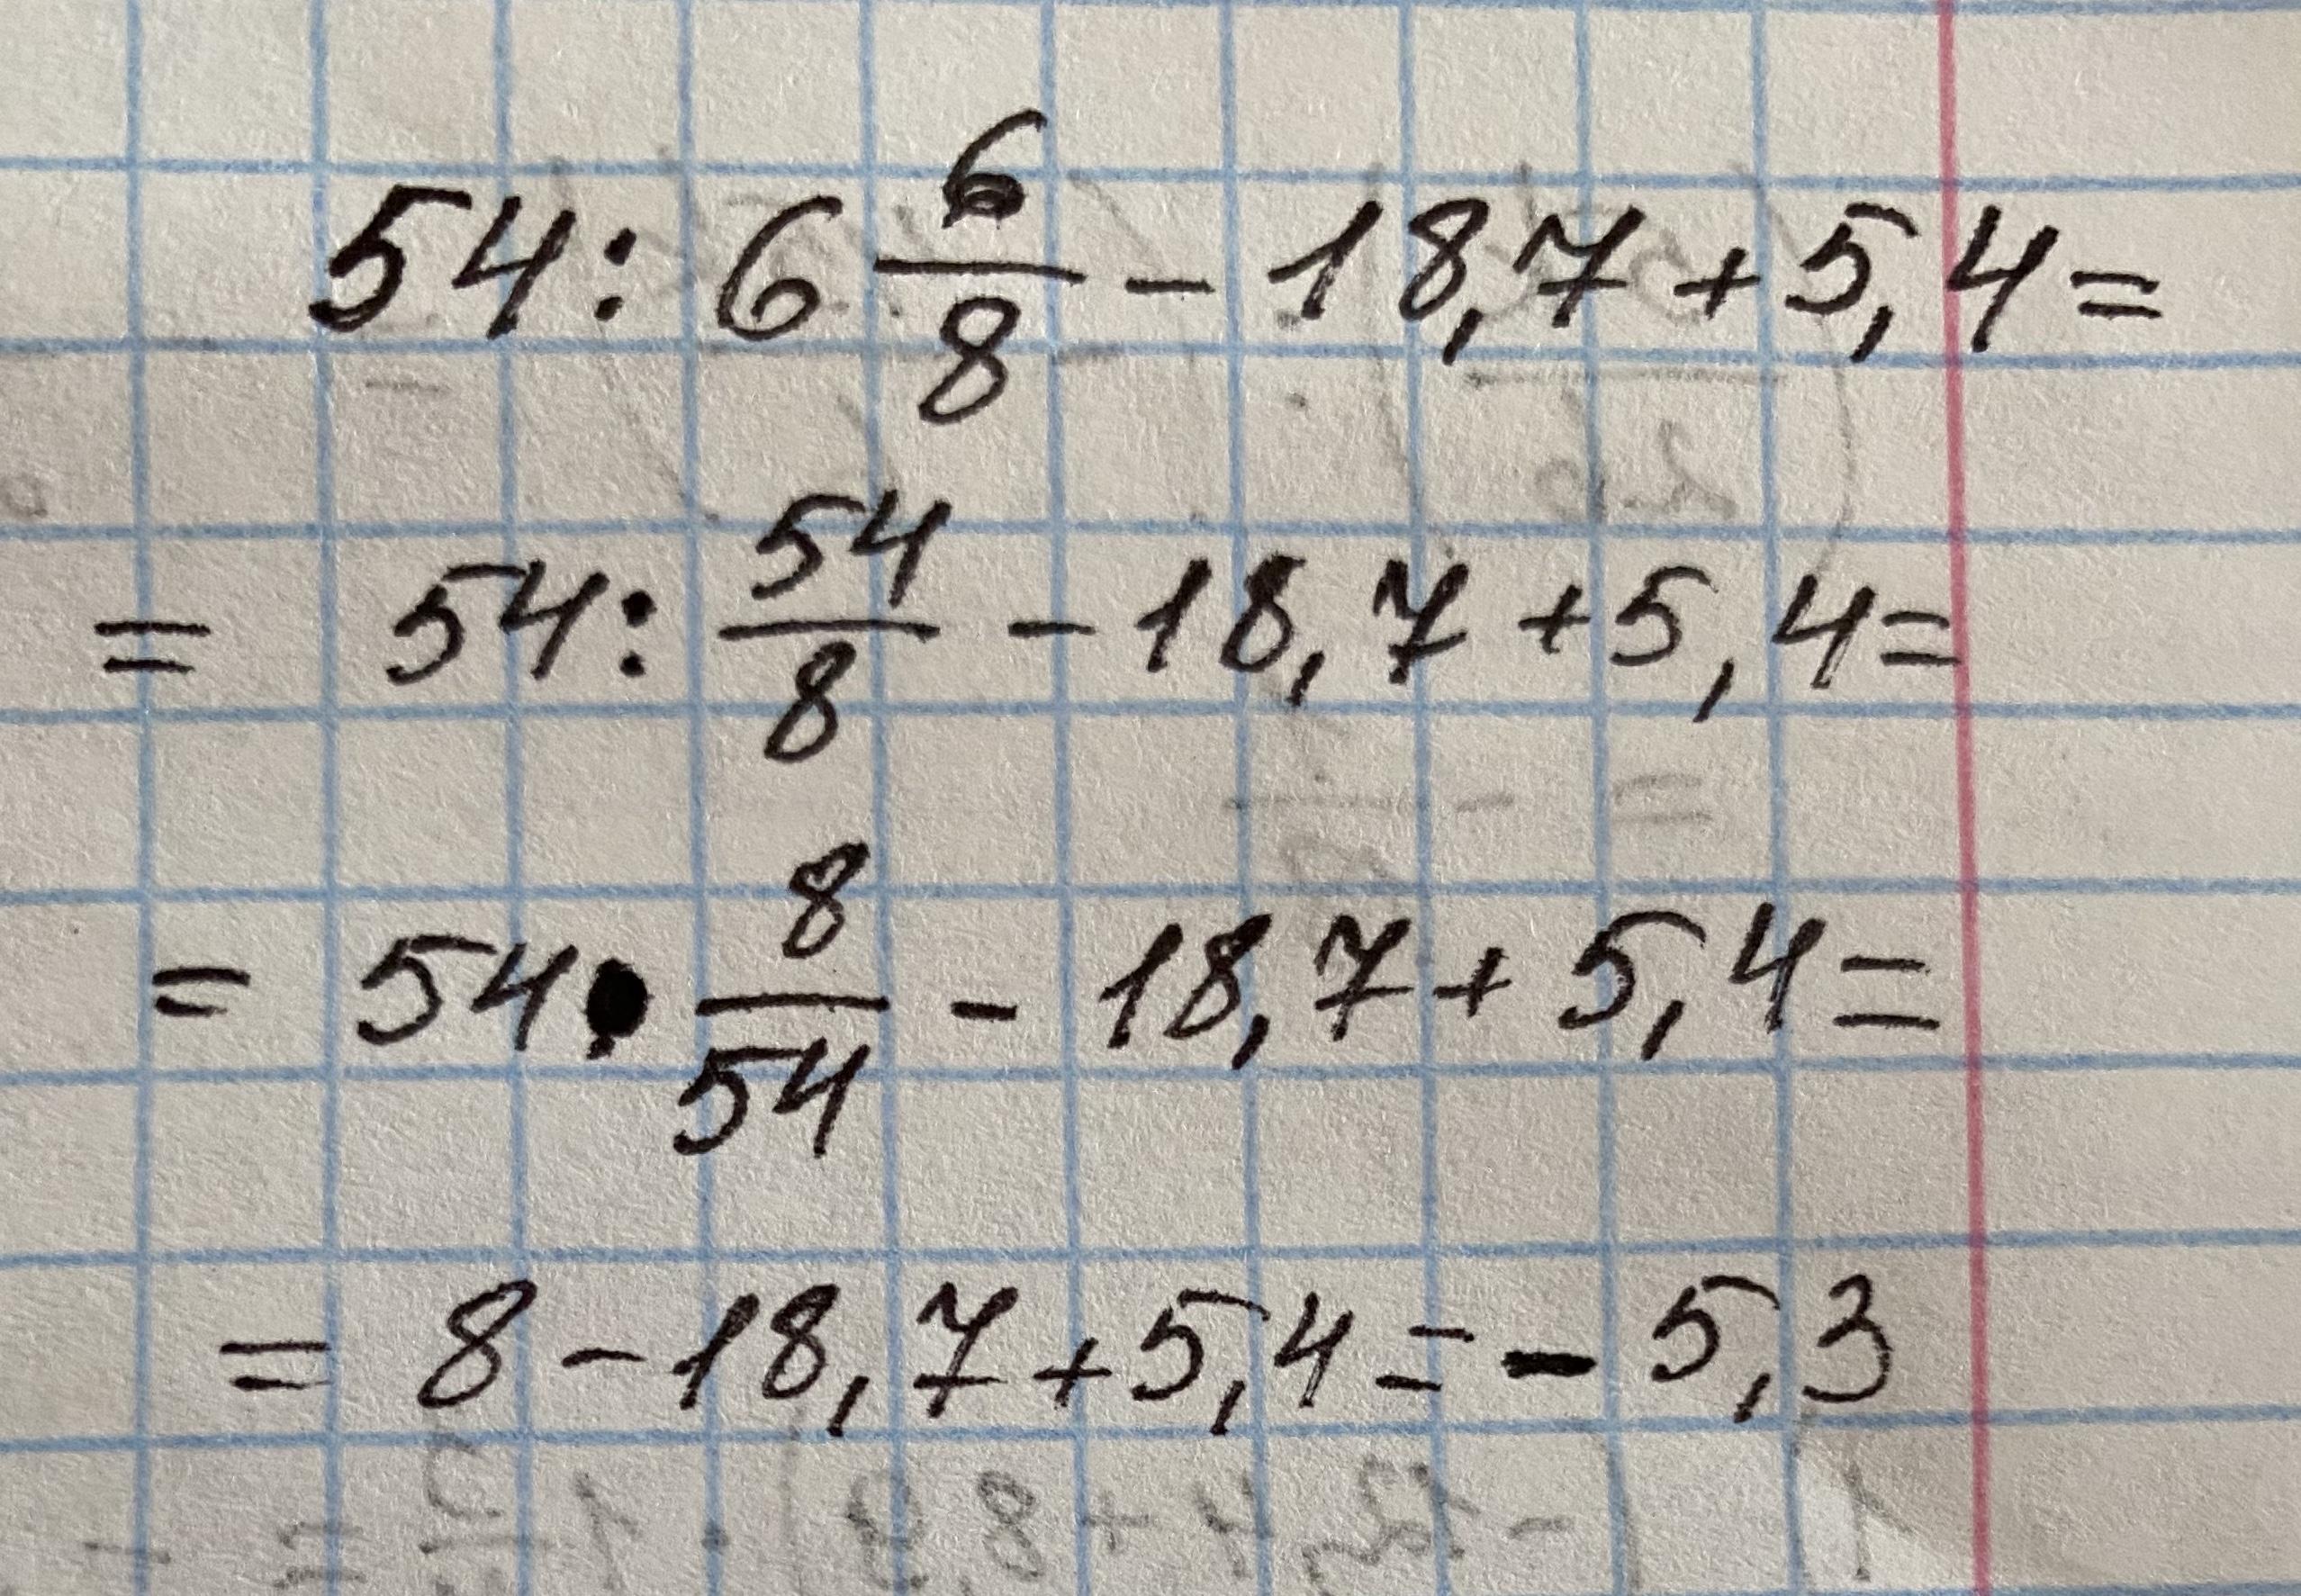 54 : 6 6/8 - 18,7 + 5,4 =
= 54 : 54/8 - 18,7 + 5,4 =
= 54 · 8/54 - 18,7 + 5,4 =
= 8 - 18,7 + 5,4 = - 5,3